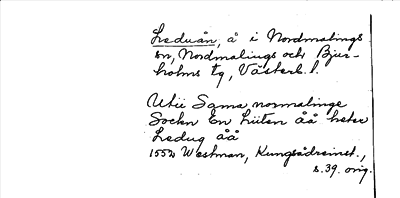 Leduån, å i Nordmalings
sn, Nordmalings och Bjur-
holms tg, Västerb. l.
Utii Sama normalinge
Sockn En Liiten åå heter
Ledug åå
1552 Westman, Kungsådreinst.,
s. 39. orig.